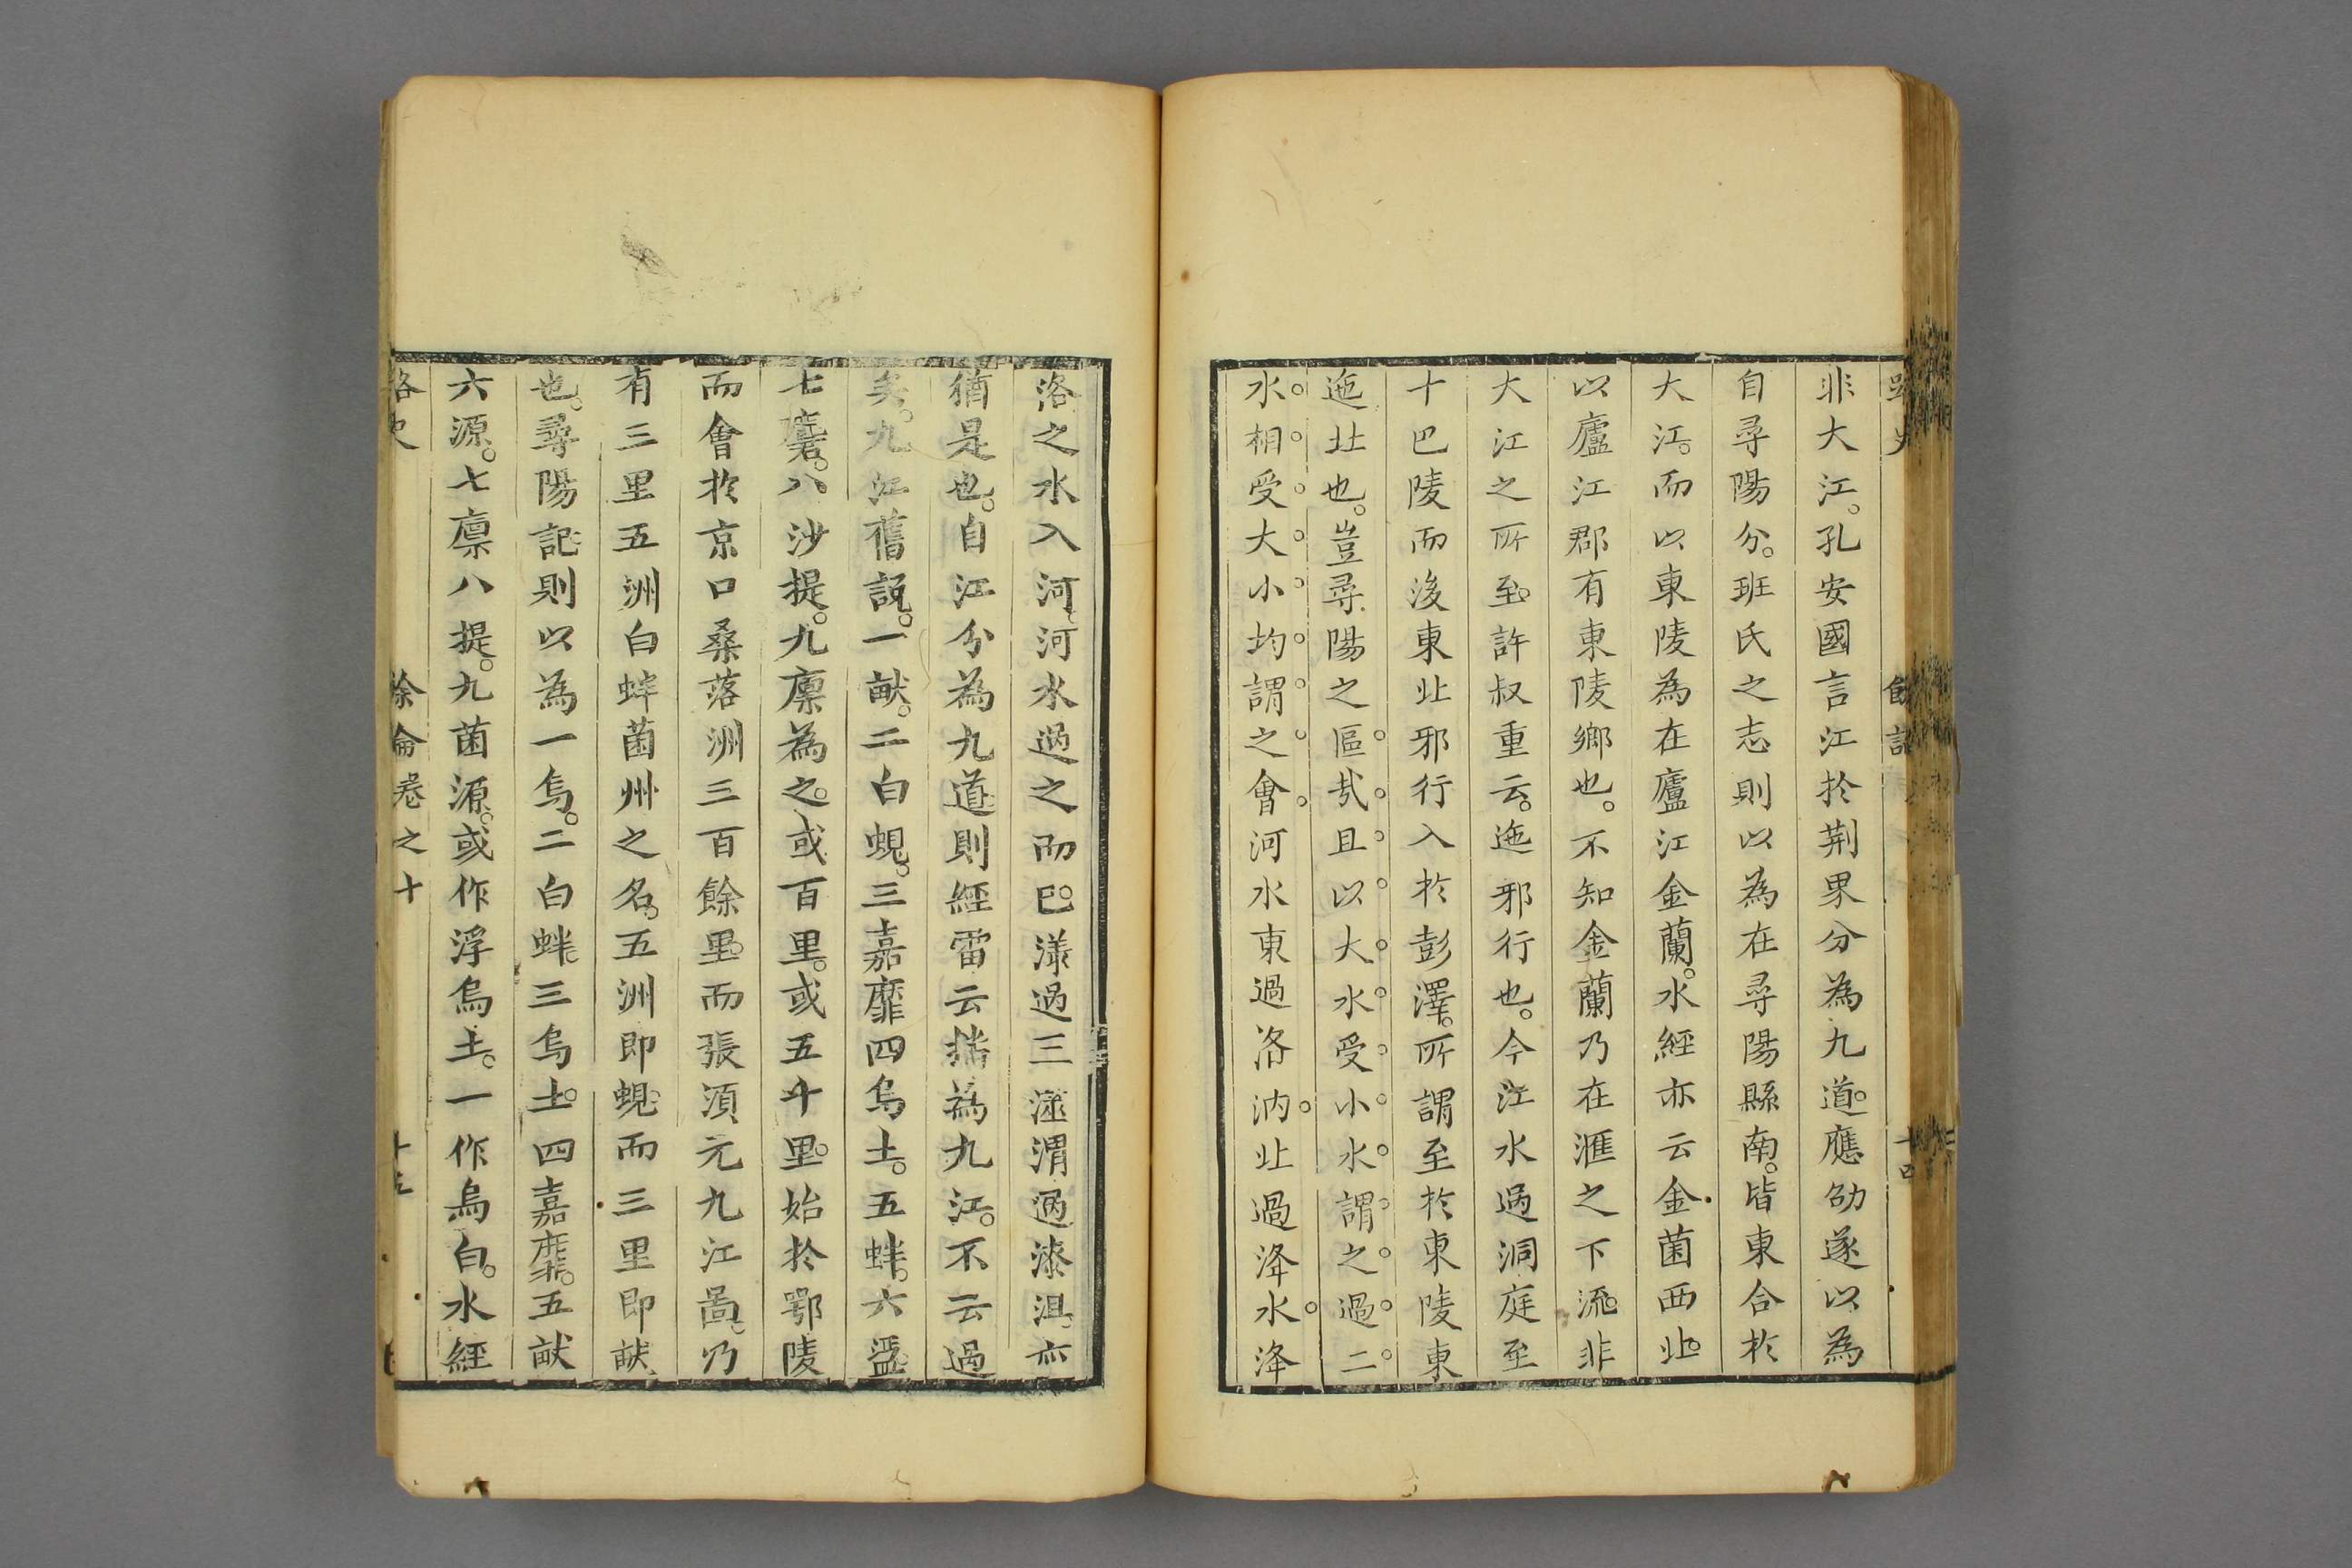 非大江孔安國言江於荆界分為九道應劭遂以為
自尋陽分班氏之志則以為在尋陽縣南皆東合於
大江而以東陵為在廬江金蘭水經亦云金菌西北
以廬江郡有東陵鄉也不知金蘭乃在滙之下流非
大江之所至許叔重云迤邪行也今江水過洞庭至
十巴陵而後東北邪行入於彭澤所謂至於東陵東
迤北也豈尋陽之區㢤且以大水受小水謂之過二
水相受大小均謂之會河水東過洛汭北過洚水洚
洛之水入河河水過之而巳漾過三澨渭過漆沮亦
猶是也自江分為九道則經當云播為九江不云過
矣九江舊說一畎二白蜆三嘉靡四烏土五蚌六盪
七麏八沙提九廩為之或百里或五十里始於鄂陵
而會於京口桑落洲三百餘里而張湏元九江圖乃
有三里五洲白蚌菌州之名五洲即蜆而三里即畎
也尋陽記則以為一烏二白蚌三烏土四嘉靡五畎
六源七廩八提九菌源或作浮烏土一作烏白水經
路史
餘論卷之十